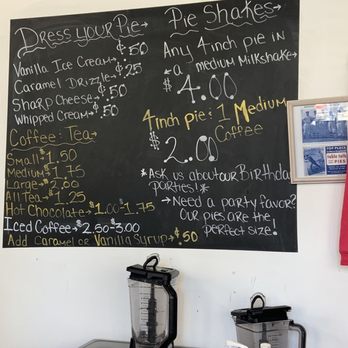 Dress your Pie→
Vanilla Ice Cream→ ¢.50
Caramel Drizzle→ ¢.25
Sharp Cheese→ ¢.50
Whipped Cream→ ¢.50
Coffee: Tea→
Small→$1.50
Medium→$1.75
Large→$2.00
All Tea→$1.25
Hot Chocolate→$1.00-$1.75
Iced Coffee→$2.50-$3.00
Add Caramel or Vanilla Syrup→¢.50
Pie Shakes→
Any 4inch pie in
a medium Milkshake→
$4.00
4inch pie: 1 Medium
Coffee
$2.00
*Ask us about our Birthday
parties!*
→Need a party favor?
Our pies are the
perfect size!
table talk
PIES